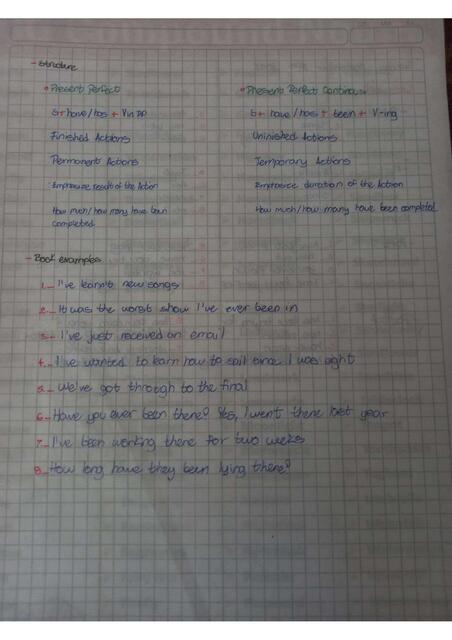 - Structure
• Present Perfect
• Present Perfect Continuous
S+ have/has + V in PP
S+ have/has + been + V-ing
Finished Actions
Uninished Actions
Permanent Actions
Temporary Actions
Emphasize result of the Action
Emphasize duration of the Action
How much/how many have been
completed
How much/how many have been completed
- Book examples
1.- I've learnt new songs
2.- It was the worst show I've ever been in
3.- I've just received an email
4.- I've wanted to learn how to sail since I was eight
5.- We've got through to the final
6.- Have you ever been there? Yes, I went there last year
7.- I've been working there for two weeks
8.- How long have they been lying there?